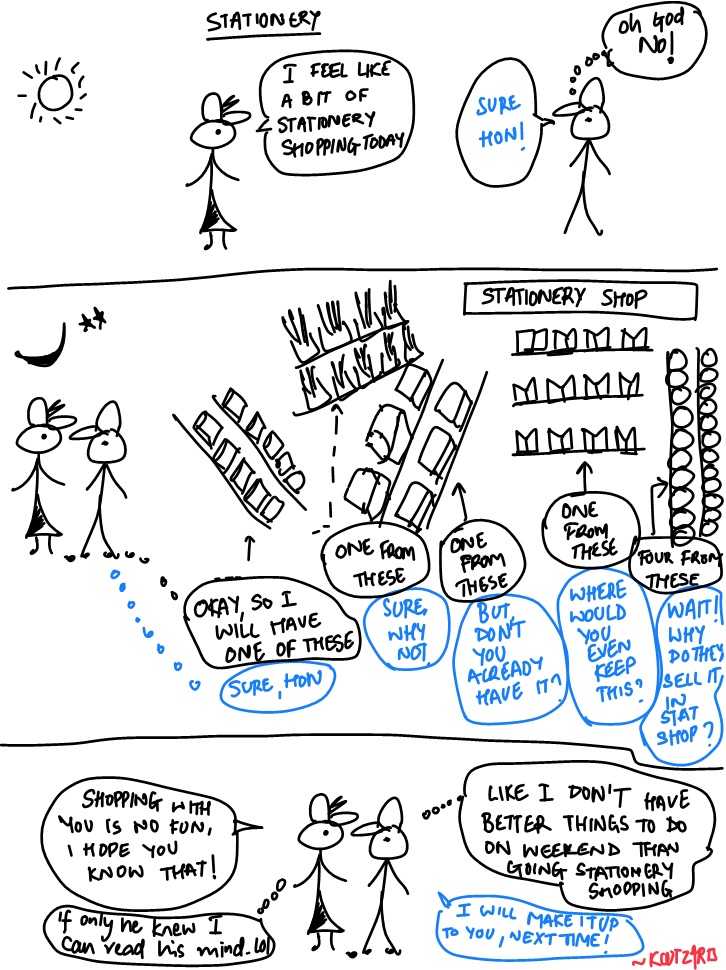 STATIONERY
I FEEL LIKE
A BIT OF
STATIONERY
SHOPPING TODAY
SURE
HON!
Oh God
No!
STATIONERY SHOP
OKAY, SO I
WILL HAVE
ONE OF THESE
SURE, HON
ONE FROM
THESE
SURE,
WHY
NOT
ONE
FROM
THESE
BUT,
DON'T
YOU
ALREADY
HAVE IT?
ONE
FROM
THESE
WHERE
WOULD
YOU
EVEN
KEEP
THIS?
FOUR FROM
THESE
WAIT!!
WHY
DO THEY
SELL IT,
IN
STAT
SHOP?
SHOPPING WITH
YOU IS NO FUN,
I HOPE YOU
KNOW THAT!
If only he knew I
Can read his mind. lol
LIKE I DON'T HAVE
BETTER THINGS TO DO
ON WEEKEND THAN
GOING STATIONERY
SHOPPING
I WILL MAKE IT UP
TO YOU, NEXT TIME!